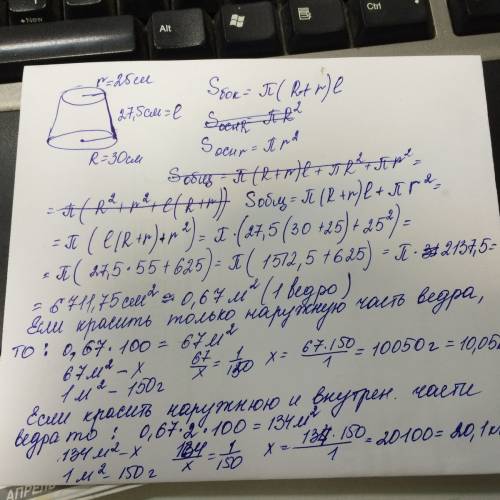 Alt
Ctrl
r=25см
27,5см=l
R=30см
Sбок = π(R+r)l
SоснR = πR²
Sоснr = πr²
Sобщ = π(R+r)l + πR² + πr² =
= π(R²+r²+l(R+r)) Sобщ = π(R+r)l + πr² =
= π(l(R+r)+r²) = π·(27,5(30+25)+25²) =
= π(27,5·55+625) = π(1512,5+625) = π·2137,5 =
= 6711,75см² ≈ 0,67м² (1 ведро)
Если красить только наружную часть ведра,
то: 0,67·100 = 67м²
67м² – x 67/x = 1/150 x = 67·150/1 = 10050г = 10,05
1м² – 150г
Если красить наружнюю и внутрен. части
ведра то: 0,67·2·100 = 134м²
134м² – x 134/x = 1/150 x = 134·150/1 = 20100 = 20,1к
1м² – 150г
АПРЕЛЬ